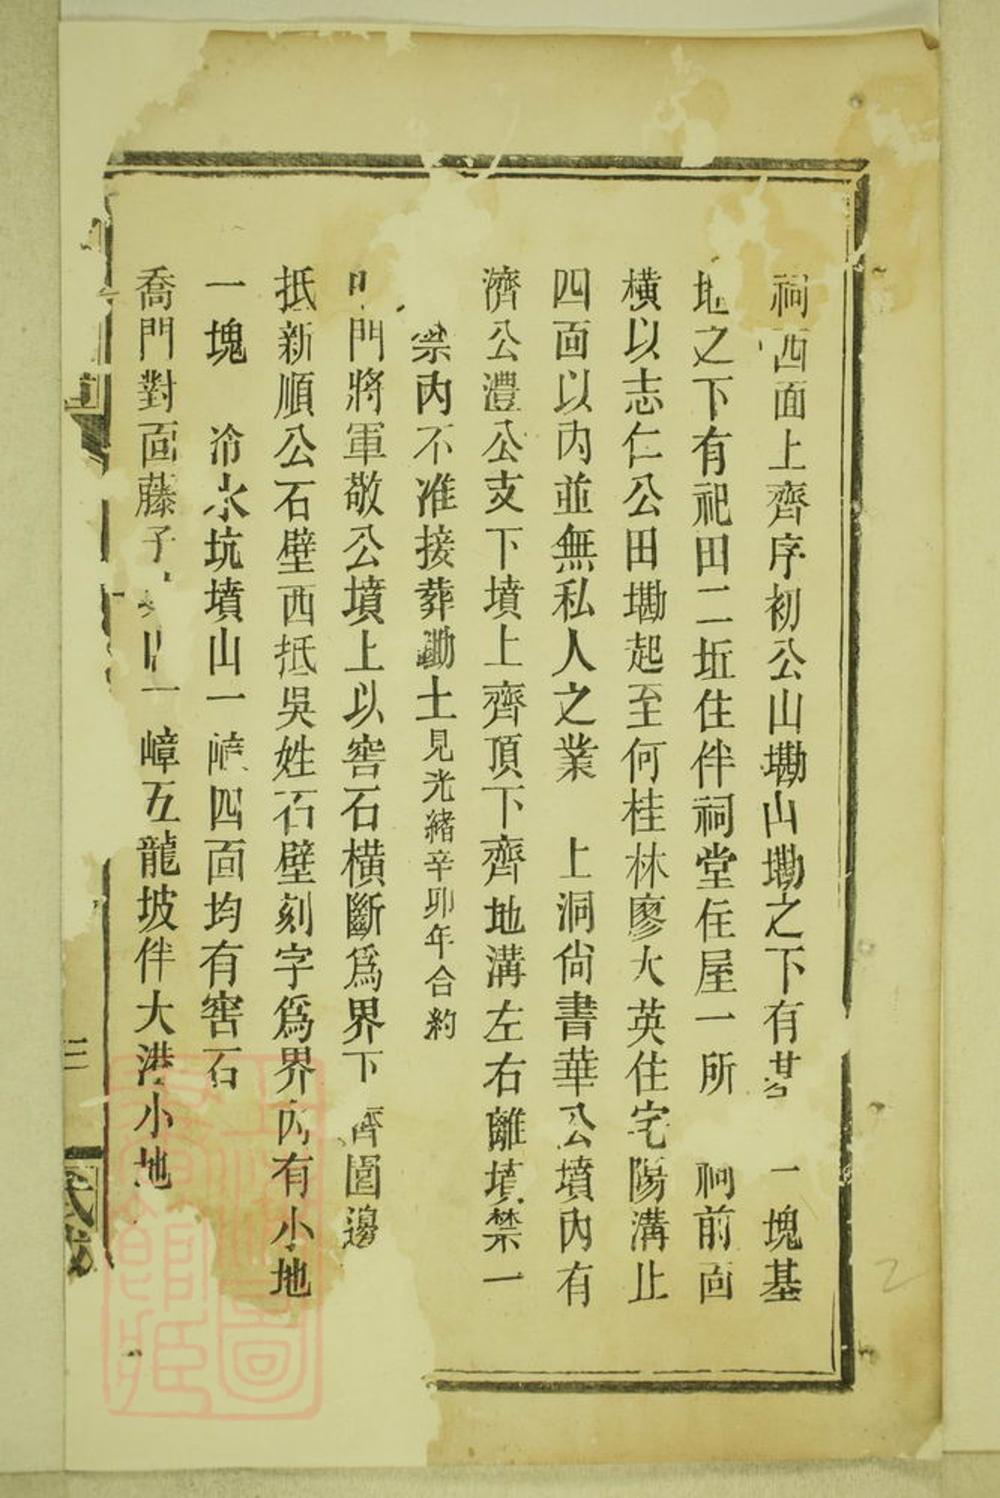 祠西面上齊序初公山墈山墈之下有 一塊基
地之下有祀田二坵住伴祠堂住屋一所 祠前面
橫以志仁公田墈起至何桂林廖大英住宅陽溝止
四面以内並無私人之業 上洞尙書華公墳內有
濟公灃公支下墳上齊頂下齊地溝左右離墳禁一
禁內不准接葬墈土見光緒辛卯年合約
門將軍敬公墳上以窖石橫斷爲界下齊圍邊
抵新順公石壁西抵吳姓石壁刻字爲界內有小地
一塊 冷水坑墳山一嶂四面均有窖石
喬門對面藤子 山一嶂五龍坡伴大港小地
三
上海圖書館藏